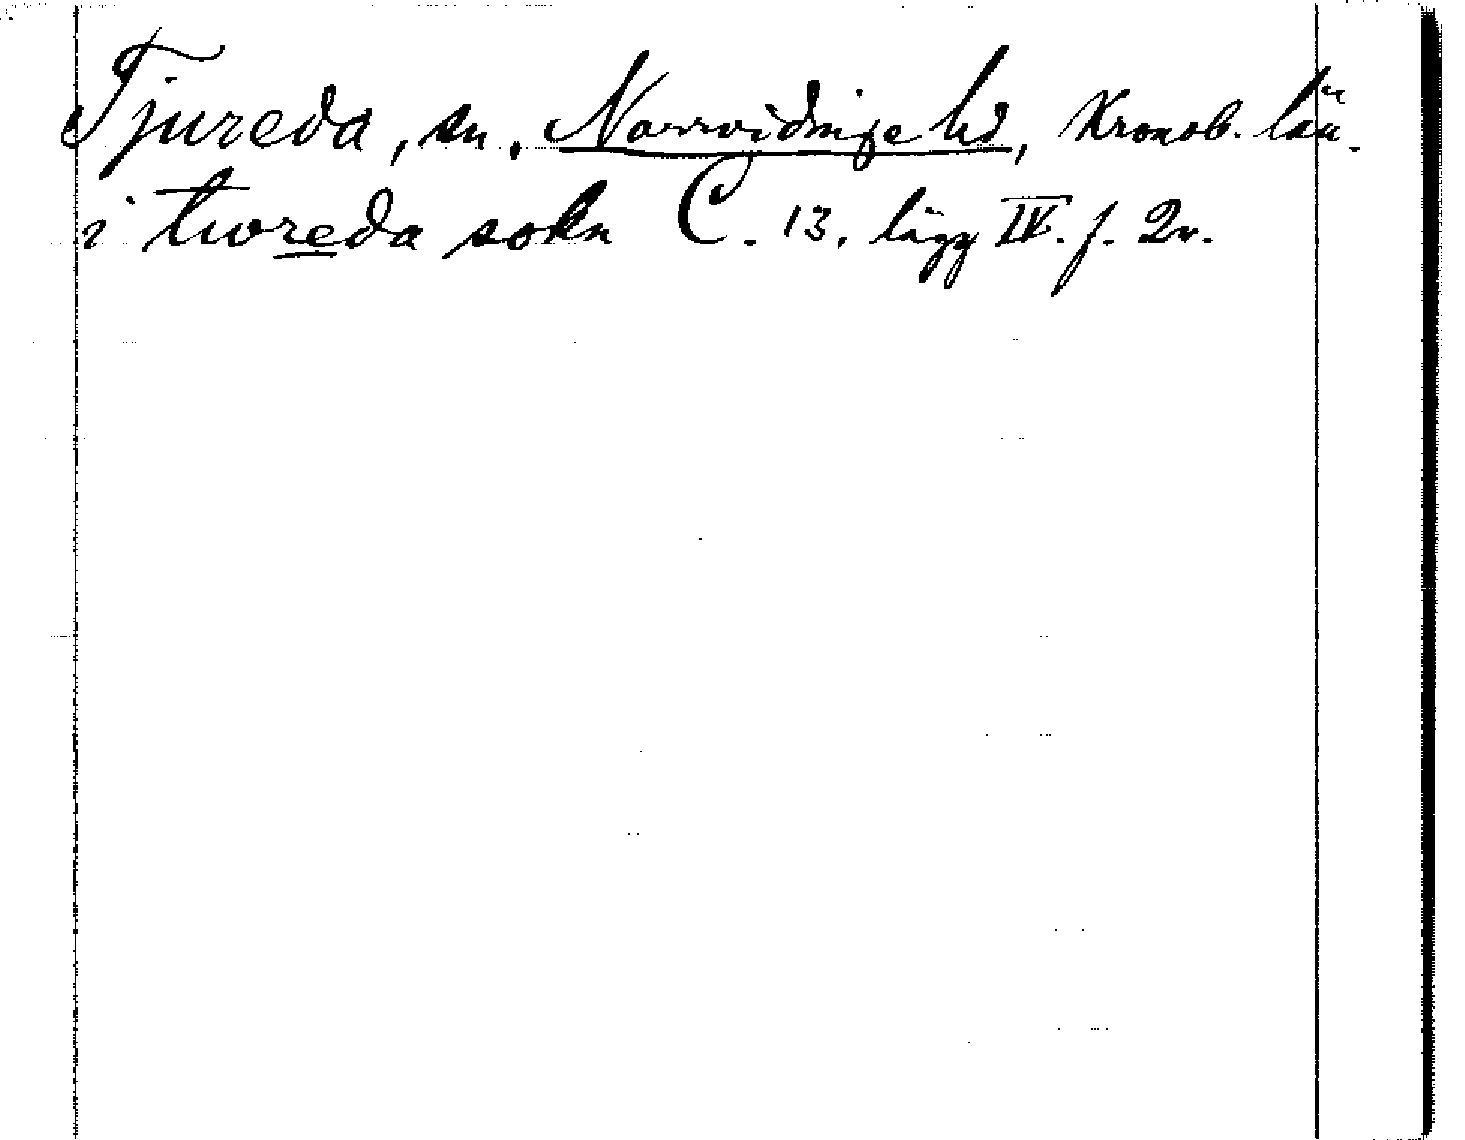 Tjureda, sn, Norrvidinge hd, Kronob. län.
i tworeda sokn C. 13, lägg IV. f. 2v.